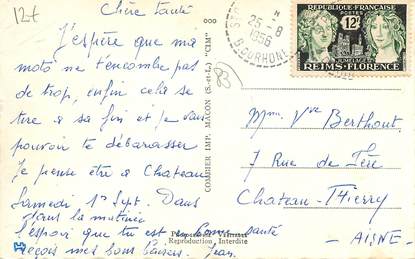 12+
Chère tante
J'espère que ma
moto ne t'encombre pas
de trop, enfin cela se
tire à sa fin et je vais
pouvoir te débarasser
Je pense être à Chateau
Samedi 1er Sept. Dans
dans la matinée
l'espoir que tu est en bonne santé
reçois mes bons baisers. Jean.
Reproduction Interdite
COMBIER IMP. MACON (S.-et-L.) "CIM"
25-8
1956
B. DU RHONE
RÉPUBLIQUE FRANÇAISE
POSTES
12F
JUMELAGE
REIMS-FLORENCE
Mme Vve Berthout
7 Rue de Fère
Chateau-Thierry
- AISNE -